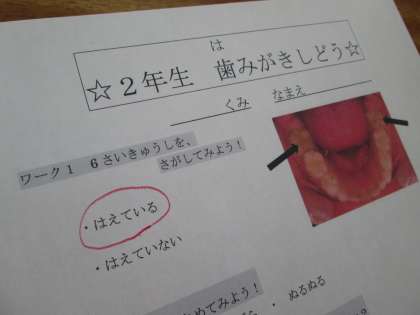 は
☆2年生 歯みがきしどう☆
くみ なまえ
ワーク1 6さいきゅうしを、
さがしてみよう！
・はえている
・はえていない
めてみよう！
・ぬるぬる